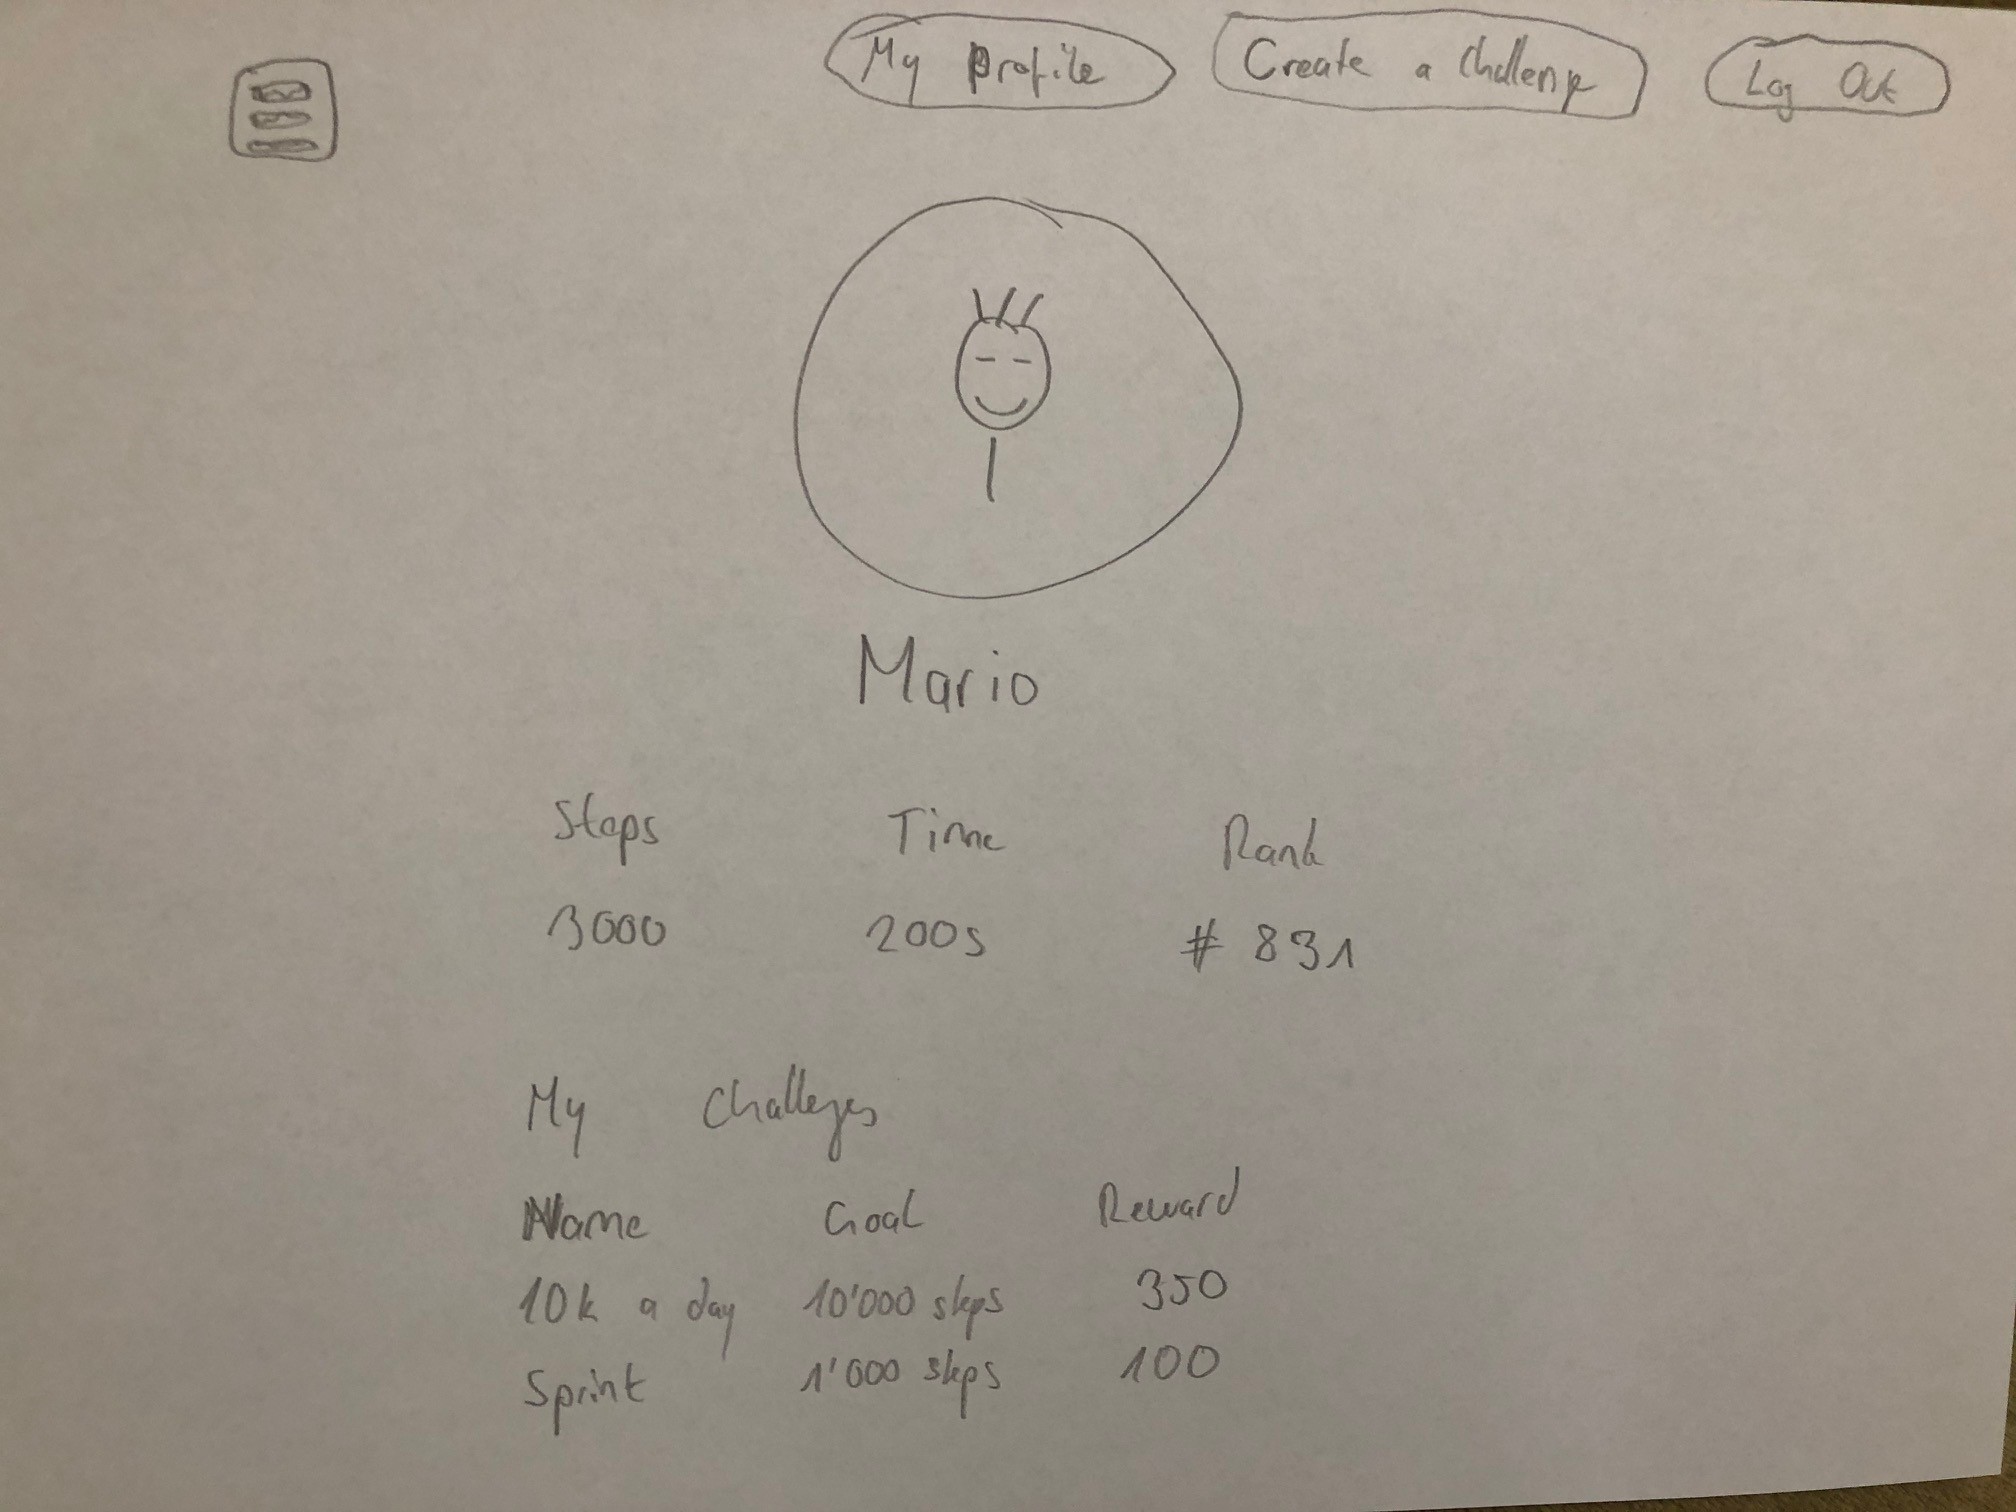 My Profile Create a Challenge Log Out
Mario
Steps Time Rank
3000 200s # 831
My Challeges
Name Goal Reward
10k a day 10'000 steps 350
Sprint 1'000 steps 100